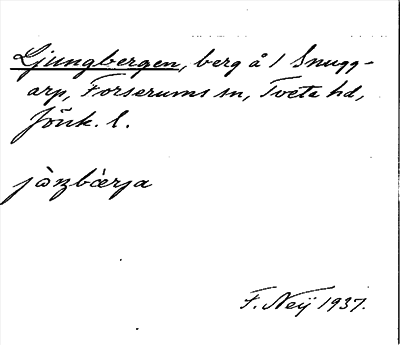 Ljungbergen, berg å 1 Snugg-
arp, Forserums sn, Tveta hd,
Jönk. l.
F. Neij 1937.